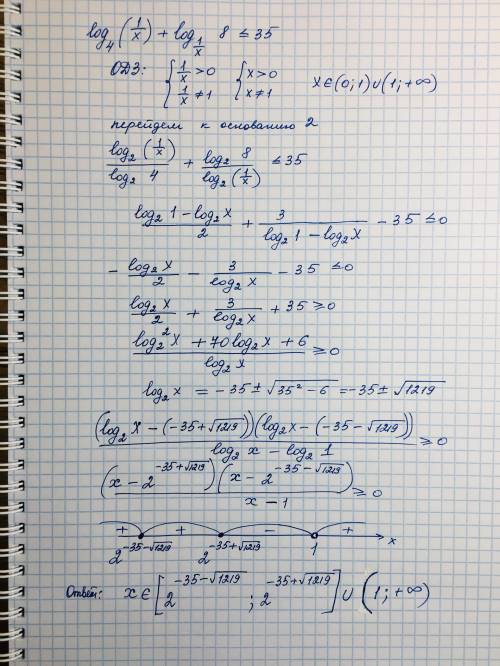 log₄(1/x) + log_{1/x} 8 ≤ 35
ОДЗ: { 1/x > 0 { x > 0 x ∈ (0; 1) ∪ (1; +∞)
{ 1/x ≠ 1 { x ≠ 1
перейдем к основанию 2
log₂(1/x)/log₂ 4 + log₂ 8/log₂(1/x) ≤ 35
(log₂ 1 − log₂ x)/2 + 3/(log₂ 1 − log₂ x) − 35 ≤ 0
− log₂ x/2 − 3/log₂ x − 35 ≤ 0
log₂ x/2 + 3/log₂ x + 35 ≥ 0
(log₂² x + 70 log₂ x + 6)/log₂ x ≥ 0
log₂ x = −35 ± √(35² − 6) = −35 ± √1219
(log₂ x − (−35 + √1219))(log₂ x − (−35 − √1219))/(log₂ x − log₂ 1) ≥ 0
(x − 2^{−35+√1219})(x − 2^{−35−√1219})/(x − 1) ≥ 0
+ + − +
2^{−35−√1219} 2^{−35+√1219} 1 x
Ответ: x ∈ [2^{−35−√1219}; 2^{−35+√1219}] ∪ (1; +∞)